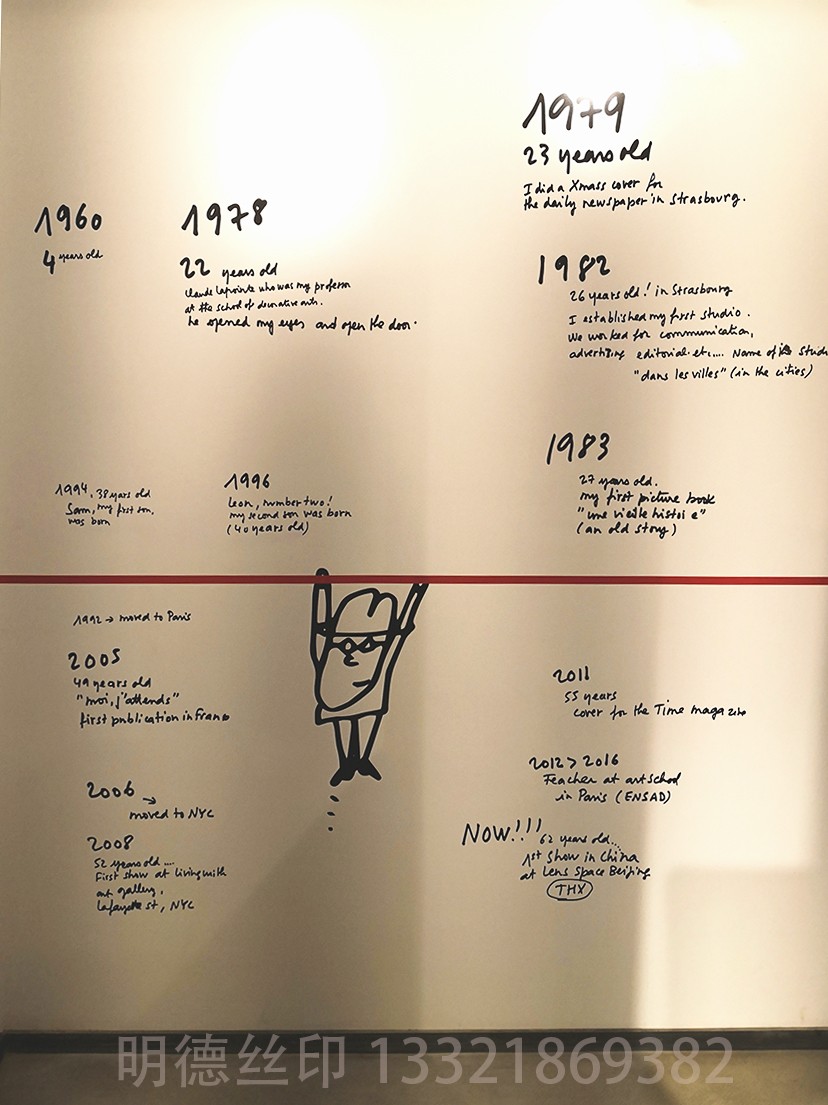 1960
4 years old
1978
22 years old
Claude Lapointe who was my professor
at the school of decorative arts.
he opened my eyes and open the door.
1979
23 years old
I did a Xmass cover for
the daily newspaper in Strasbourg.
1982
26 years old! in Strasbourg
I established my first studio.
We worked for communication,
advertising editorial. etc.... Name of
"dans les villes" (in the cities)
1983
27 years old.
my first picture book
"une vieille histoi e"
(an old story)
1994, 38 years old
Sam, my first son,
was born
1996
Leon, number two!
my second son was born
(40 years old)
1992 → moved to Paris
2005
49 years old
"moi, j'attends"
first publication in France
2006
→
moved to NYC
2008
52 years old ....
First show at living with
art gallery,
Lafayette st, NYC
2011
55 years
cover for the Time magazine
2012 > 2016
Teacher at art school
in Paris (ENSAD)
NOW!!! 62 years old...
1st Show in China
at Lens Space Beijing
THX
明德丝印 13321869382